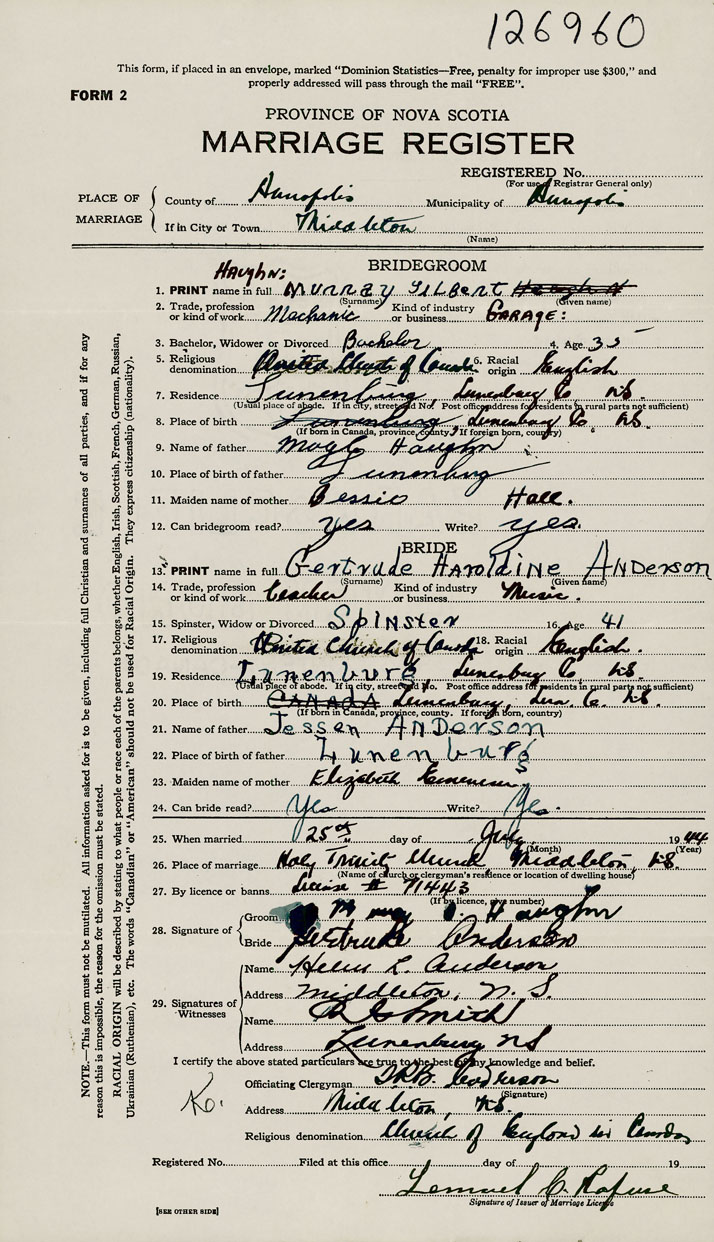 126960
This form, if placed in an envelope, marked "Dominion Statistics—Free, penalty for improper use $300," and
properly addressed will pass through the mail "FREE".
FORM 2
PROVINCE OF NOVA SCOTIA
MARRIAGE REGISTER
REGISTERED No.
(For use of Registrar General only)
PLACE OF MARRIAGE
County of Annapolis Municipality of Annapolis
If in City or Town Middleton
(Name)
BRIDEGROOM
HAUGHN:
1. PRINT name in full MURRAY GILBERT
(Surname) (Given name)
2. Trade, profession or kind of work Mechanic Kind of industry or business. GARAGE:
3. Bachelor, Widower or Divorced Bachelor 4. Age 35
5. Religious denomination United Church of Canada 6. Racial origin English
7. Residence Lunenburg, Lunenburg Co. N.S.
(Usual place of abode. If in city, street and No. Post office address for residents in rural parts not sufficient)
8. Place of birth Lunenburg, Lunenburg Co. N.S.
(If born in Canada, province, county. If foreign born, country)
9. Name of father Haughn
10. Place of birth of father Lunenburg
11. Maiden name of mother Bessie Hall.
12. Can bridegroom read? yes Write? yes.
BRIDE
13. PRINT name in full Gertrude HAROLDINE ANDERSON
(Surname) (Given name)
14. Trade, profession or kind of work teacher Kind of industry or business. Music.
15. Spinster, Widow or Divorced SPINSTER 16. Age 41
17. Religious denomination United Church of Canada 18. Racial origin English.
19. Residence Lunenburg, Lunenburg Co. N.S.
(Usual place of abode. If in city, street and No. Post office address for residents in rural parts not sufficient)
20. Place of birth CANADA Lunenburg, Lun. Co. N.S.
(If born in Canada, province, county. If foreign born, country)
21. Name of father Jessen ANDERSON
22. Place of birth of father Lunenburg
23. Maiden name of mother Elizabeth
24. Can bride read? Yes Write? Yes.
25. When married 25th day of July 1944
(Month) (Year)
26. Place of marriage Holy Trinity Church, Middleton, N.S.
(Name of church or clergyman's residence or location of dwelling house)
27. By licence or banns License # 71443
(If by licence, give number)
28. Signature of
Groom Haughn
Bride Gertrude Anderson
29. Signatures of Witnesses
Name Helen L. Anderson
Address Middleton, N.S.
Name Smith
Address Lunenburg NS
I certify the above stated particulars are true to the best of my knowledge and belief.
Officiating Clergyman
(Signature)
Address Middleton, N.S.
Religious denomination Church of England in Canada
Registered No. Filed at this office day of 19
Lemuel C. Rafuse
Signature of Issuer of Marriage Licence
[SEE OTHER SIDE]
NOTE.—This form must not be mutilated. All information asked for is to be given, including full Christian and surnames of all parties, and if for any
reason this is impossible, the reason for the omission must be stated.
RACIAL ORIGIN will be described by stating to what people or race each of the parents belongs, whether English, Irish, Scottish, French, German, Russian,
Ukrainian (Ruthenian), etc. The words "Canadian" or "American" should not be used for Racial Origin. They express citizenship (nationality).